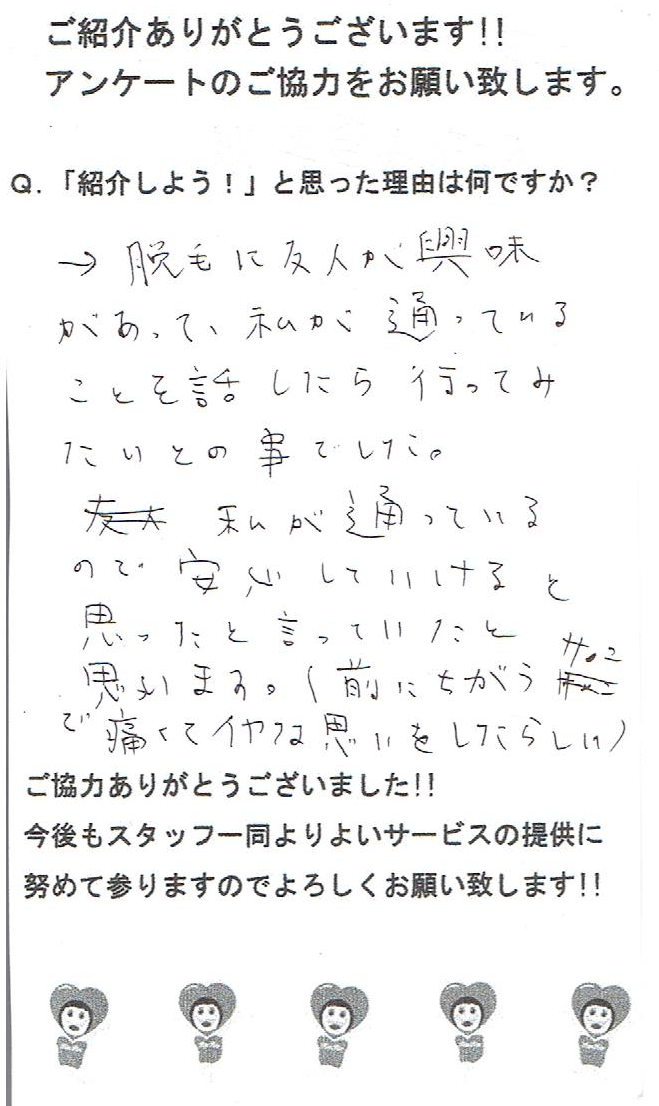 ご紹介ありがとうございます!!
アンケートのご協力をお願い致します。
Q.「紹介しよう！」と思った理由は何ですか？
→ 脱毛に友人が興味
があって、私が通っている
ことを話したら行ってみ
たいとの事でした。
私が通っている
ので安心していけると
思ったと言っていたと
思います。(前にちがう
で痛くてイヤな思いをしたらしい)
ご協力ありがとうございました!!
今後もスタッフ一同よりよいサービスの提供に
努めて参りますのでよろしくお願い致します!!